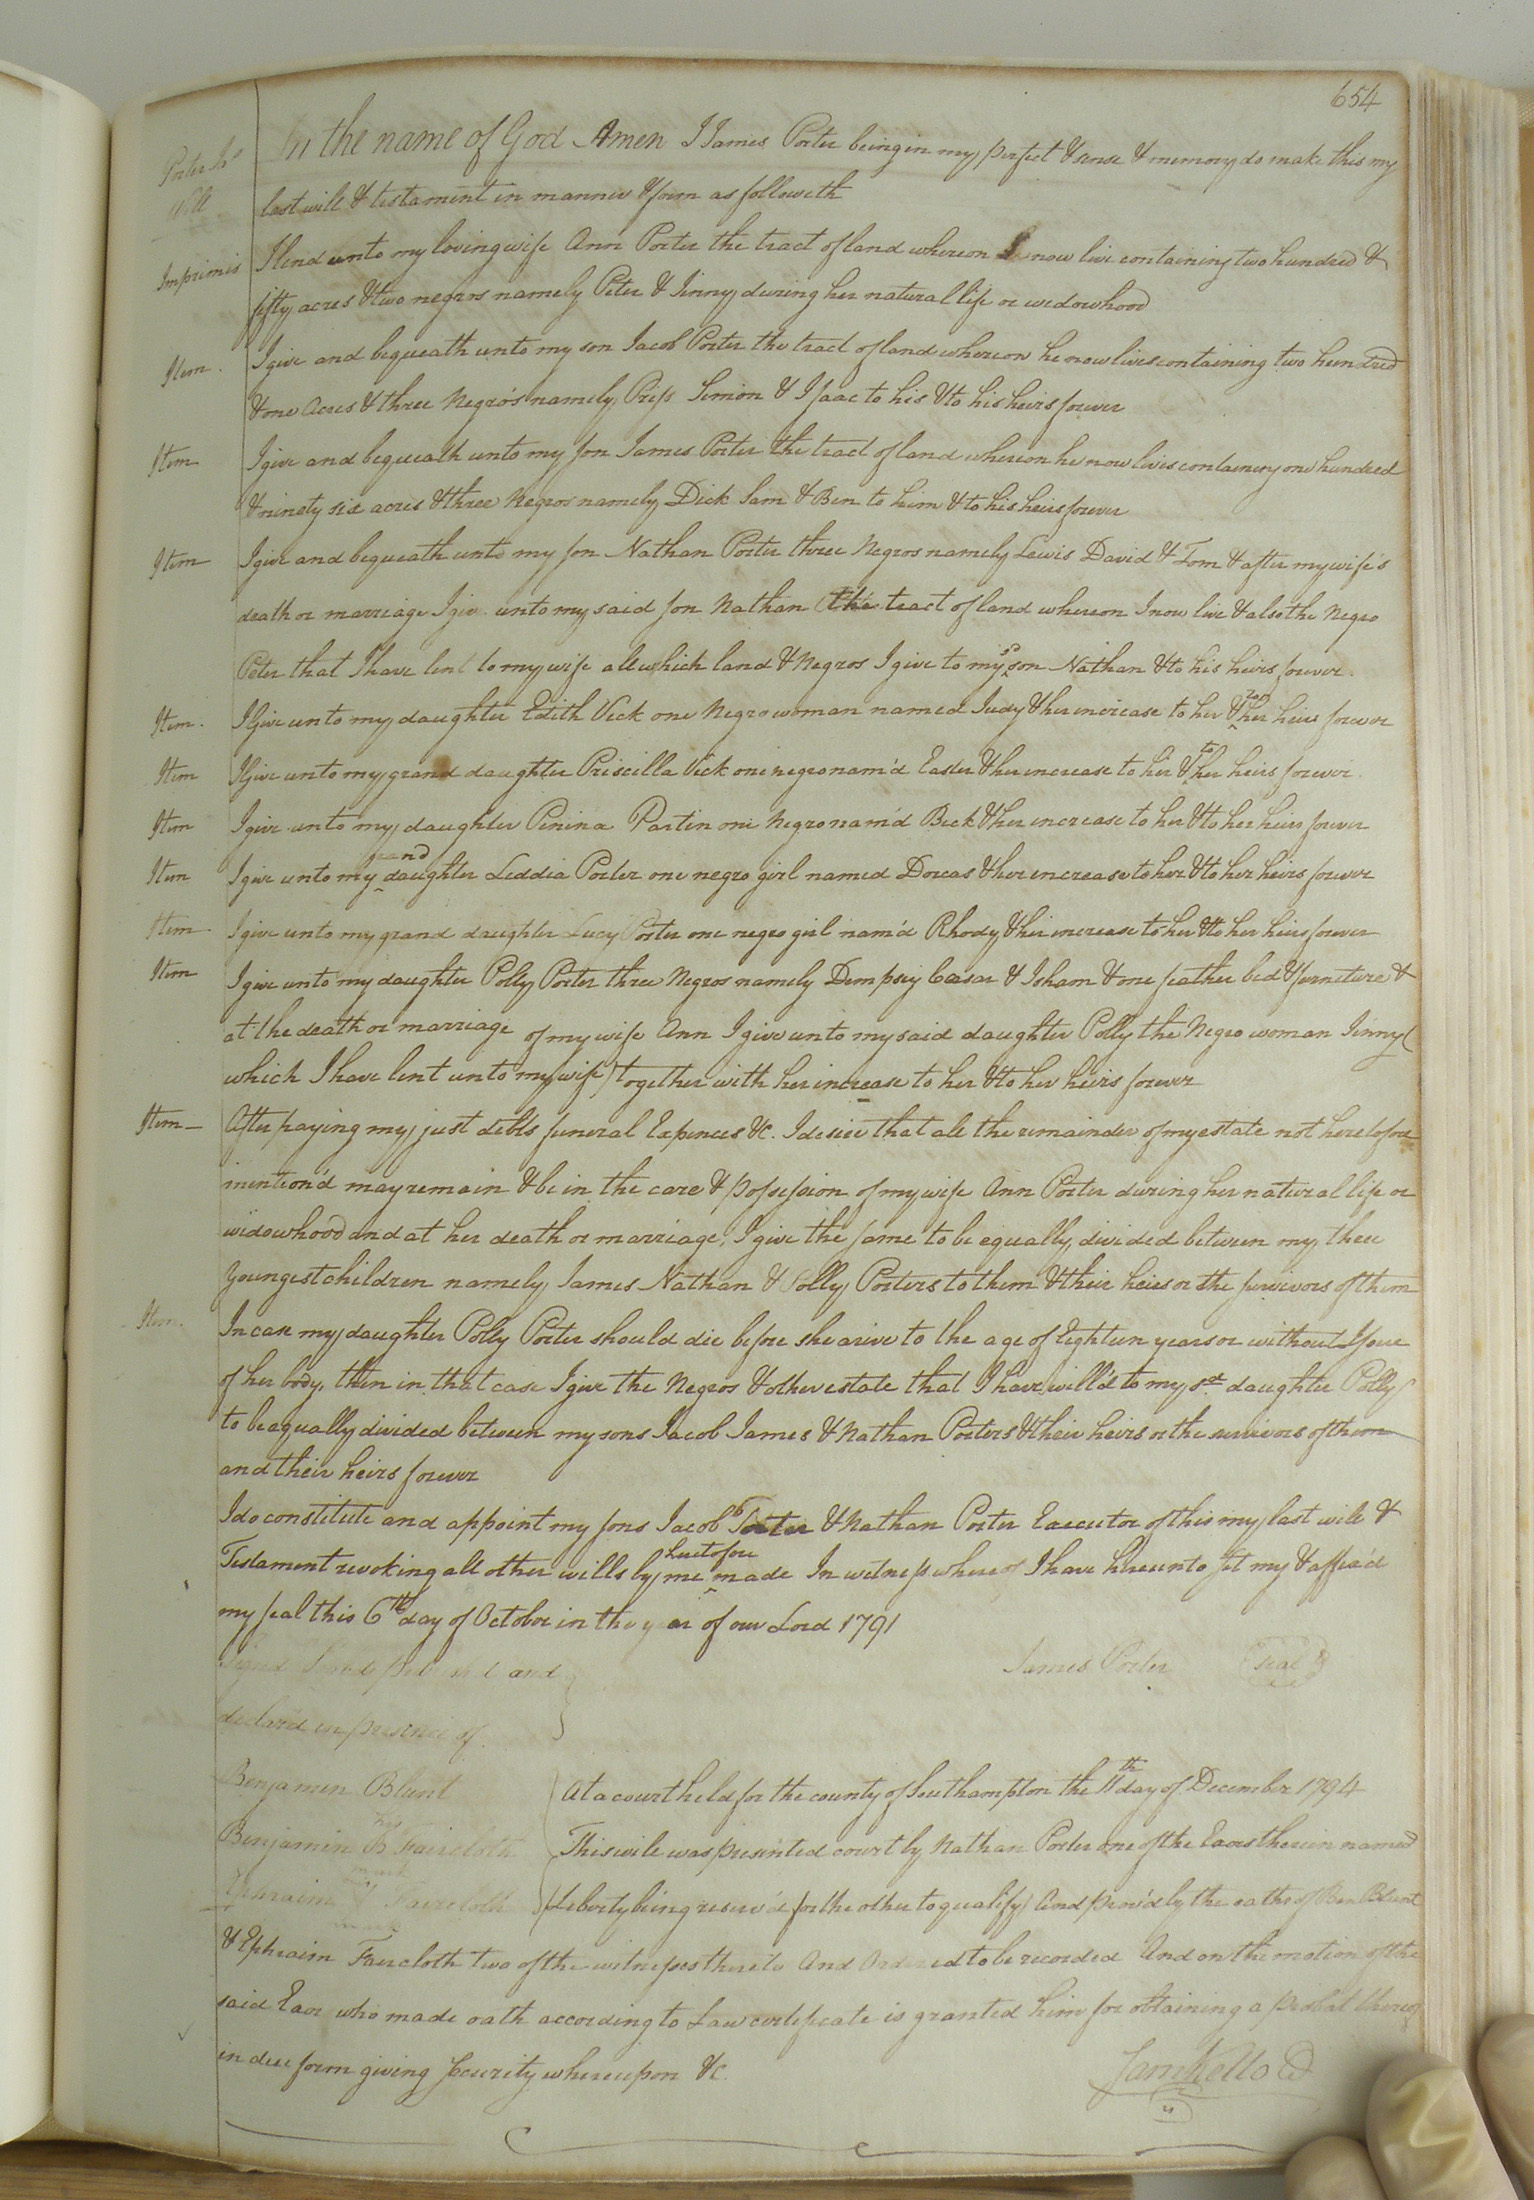 654
Porter Js
Will
In the name of God Amen I James Porter being in my perfect & sense & memory do make this my
last will & testament in manner & form as followeth
Imprimis I lend unto my loving wife Ann Porter the tract of land whereon I now live containing two hundred &
fifty acres & two negros namely Peter & Jinny during her natural life or widowhood
Item. I give and bequeath unto my son Jacob Porter the tract of land whereon he now lives containing two hundred
& one Acres & three Negro's namely Press Simon & Isaac to his & to his heirs forever
Item I give and bequeath unto my son James Porter the tract of land whereon he now lives containing one hundred
& ninety six acres & three Negros namely Dick Sam & Ben to him & to his heirs forever
Item I give and bequeath unto my son Nathan Porter three Negros namely Lewis David & Tom & after my wife's
death or marriage I give unto my said son Nathan the tract of land whereon I now live & also the Negro
Peter that I have lent to my wife all which land & Negros I give to my sd son Nathan & to his heirs forever.
Item. I Give unto my daughter Edith Vick one Negro woman named Judy & her increase to her & her heirs forever
Item I Give unto my grand daughter Priscilla Vick one negro nam'd Easter & her increase to her & to her heirs forever.
Item I give unto my daughter Penina Partin one Negro nam'd Beck & her increase to her & to her heirs forever
Item I give unto my grand daughter Leddia Porter one negro girl named Dorcas & her increase to her & to her heirs forever
Item I give unto my grand daughter Lucy Porter one negro girl nam'd Rhody & her increase to her & to her heirs forever
Item I give unto my daughter Polly Porter three Negros namely Dempsey Ceasar & Isham & one feather bed & furniture &
at the death or marriage of my wife Ann I give unto my said daughter Polly the Negro woman Jinny (
which I have lent unto my wife) together with her increase to her & to her heirs forever
Item After paying my just debts funeral Expences &c. I desire that all the remainder of my estate not heretofore
mention'd may remain & be in the care & possession of my wife Ann Porter during her natural life or
widowhood and at her death or marriage, I give the same to be equally divided between my three
Youngest children namely James Nathan & Polly Porters to them & their heirs or the survivors of them
Item. In case my daughter Polly Porter should die before she arive to the age of Eighteen years or without Issue
of her body, then in that case I give the Negros & other estate that I have will'd to my sd daughter Polly
to be equally divided between my sons Jacob James & Nathan Porters & their heirs or the survivors of them
and their heirs forever
I do constitute and appoint my sons Jacob Porter & Nathan Porter Executor of this my last will &
Testament revoking all other wills by me heretofore made In witness whereof I have hereunto set my & affix'd
my seal this 6th day of October in the year of our Lord 1791
Signed Seal'd and
James Porter (seal)
declar'd in presence of
Benjamin Blunt
Benjamin his B mark Faircloth
Ephraim mark Faircloth
At a court held for the county of Southampton the 11th day of December 1794
This will was presented court by Nathan Porter one of the Exors therein named
(Liberty being reserv'd for the other to qualify) And prov'd by the oaths of Ben Blunt
& Ephraim Faircloth two of the witnesses thereto And Ordered to be recorded And on the motion of the
said Exor who made oath according to Law certificate is granted him for obtaining a probat thereof
in due form giving security whereupon &c.
Saml Kello